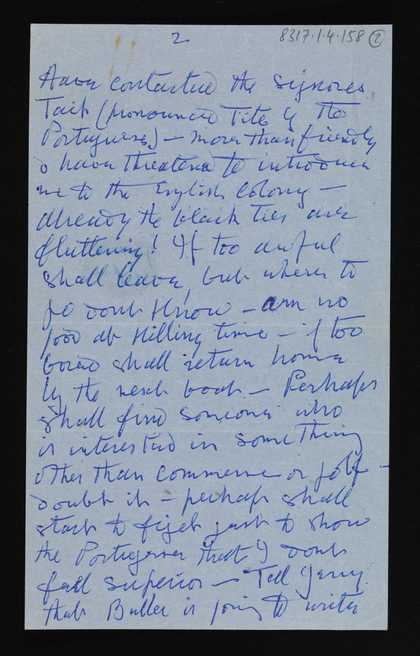 2
8317.1.4.158 (2)
Have contacted the Signores
Tait (pronounced Tite by the
Portuguese) – more than friendly
& have threatened to introduce
me to the English Colony –
already the black ties are
fluttering! If too awful
shall leave, but where to
go dont know – am no
good at killing time – if too
bored shall return home
by the next boat – Perhaps
shall find someone who
is interested in something
other than commerce or golf –
doubt it – perhaps shall
start to fight just to show
the Portuguese that I dont
feel superior – Tell Jerry
that Buller is going to write